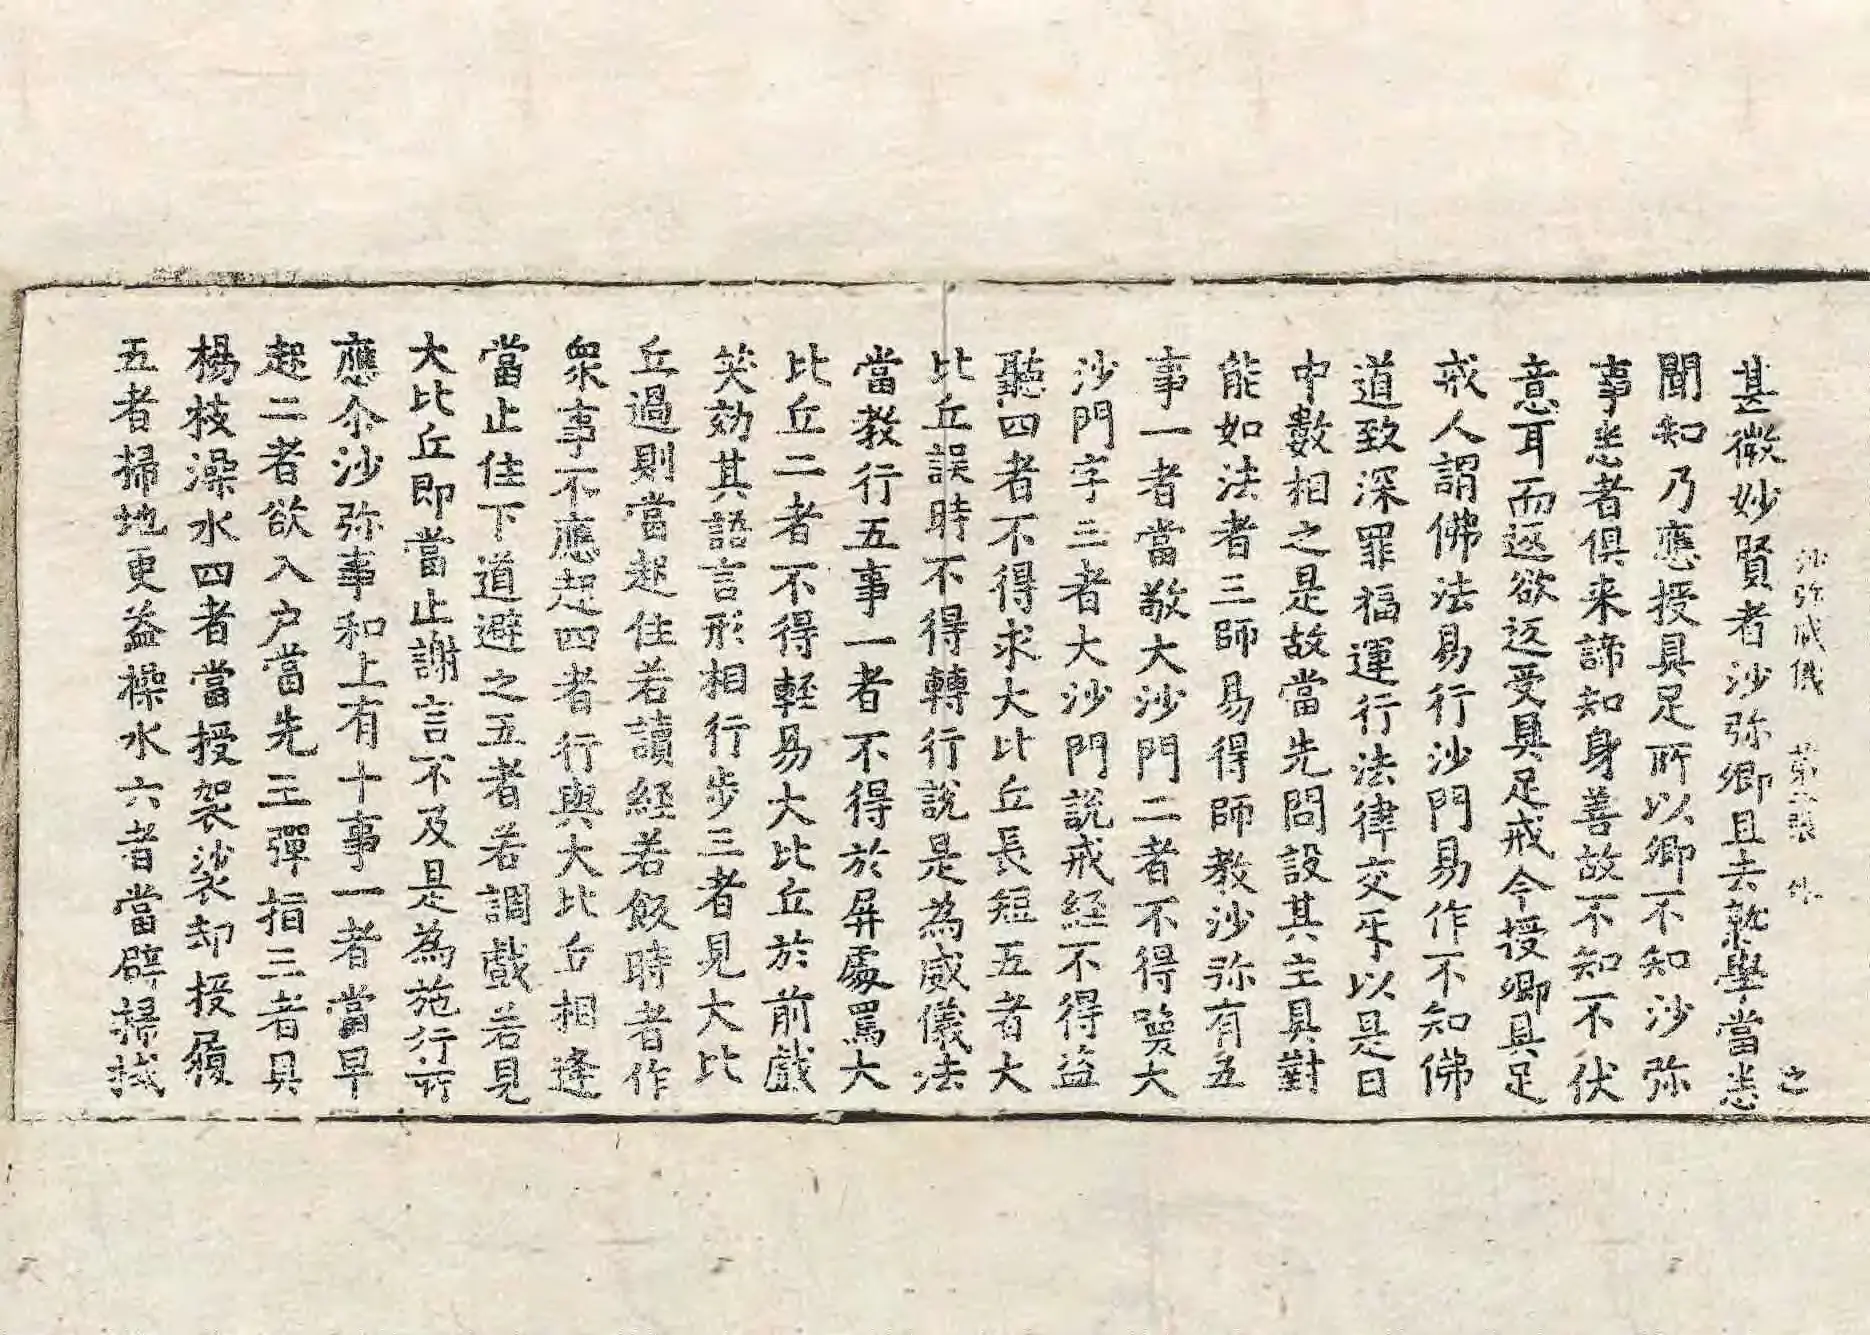 沙弥威儀　第二張　作　之
甚微妙賢者沙弥卿且去熟學當悉
聞知乃應授具足所以卿不知沙弥
事悉者俱来諦知身善故不知不伏
意耳而返欲返受具足戒今授卿具足
戒人謂佛法易行沙門易作不知佛
道致深罪福運行法律交牙以是日
中數相之是故當先問設其主具對
能如法者三師易得師教沙弥有五
事一者當敬大沙門二者不得喚大
沙門字三者大沙門說戒経不得盗
聽四者不得求大比丘長短五者大
比丘誤時不得轉行說是為威儀法
當教行五事一者不得於屏處罵大
比丘二者不得輕易大比丘於前戲
笑効其語言形相行歩三者見大比
丘過則當起住若讀経若飯時者作
衆事不應起四者行與大比丘相逢
當止住下道避之五者若調戲若見
大比丘即當止謝言不及是為施行所
應尒沙弥事和上有十事一者當早
起二者欲入户當先三彈指三者具
楊枝澡水四者當授袈裟却授履
五者掃地更益橾水六者當辟掃拭